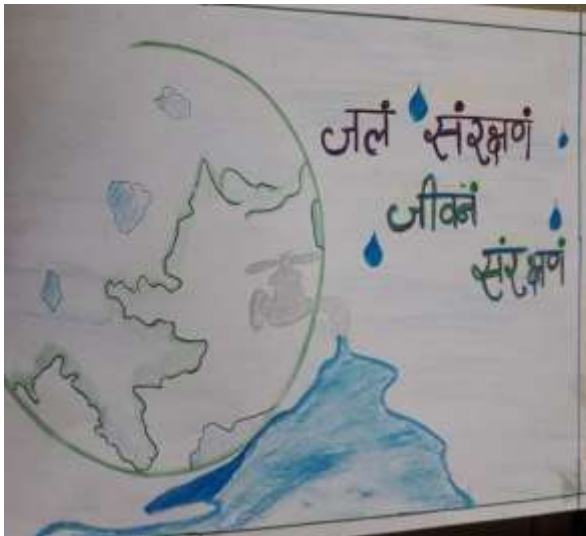 जलं संरक्षणं
जीवनं
संरक्षणं